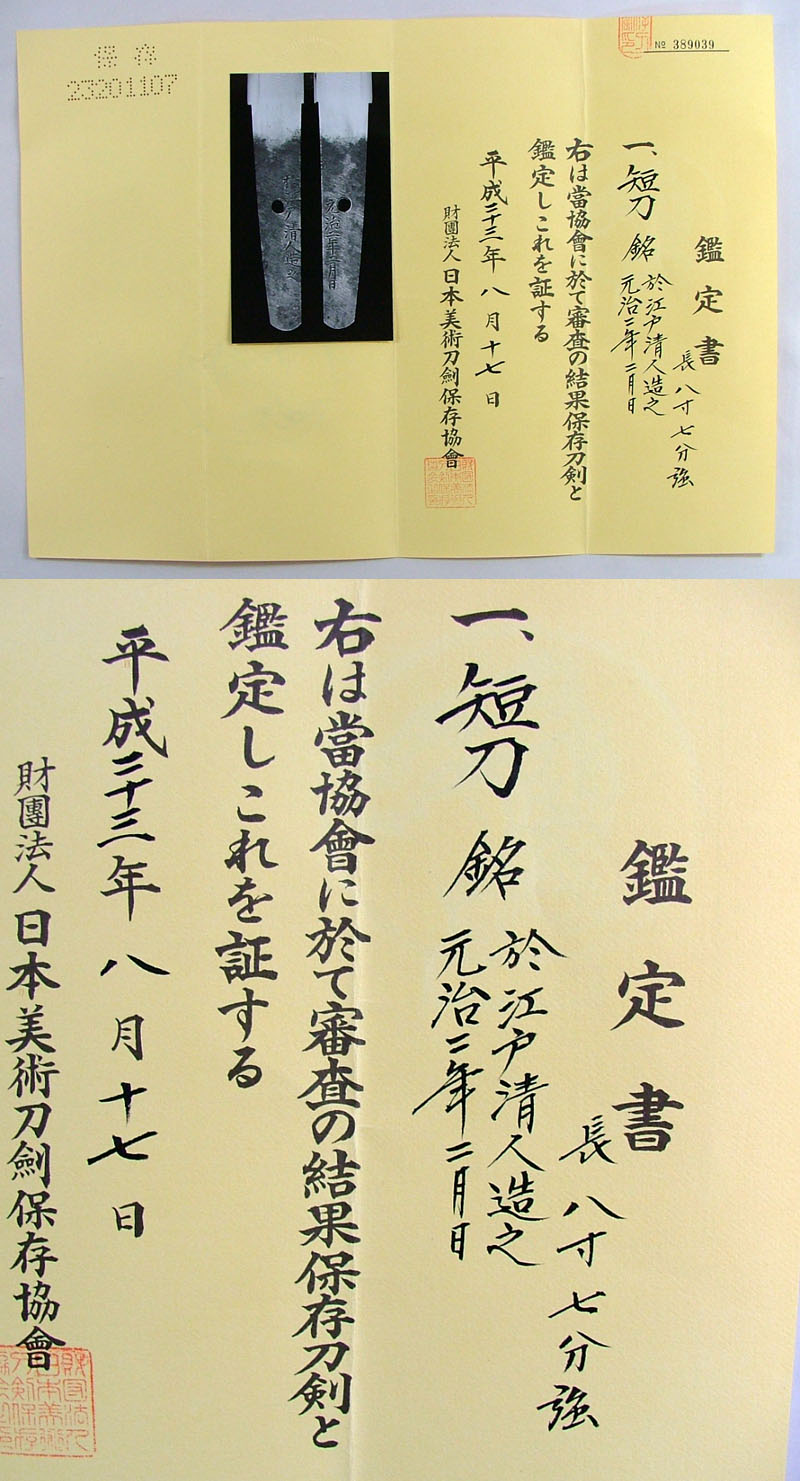 保存
23201107
№ 389039
鑑定書
一、短刀 銘 於江戸清人造之
元治二年二月日
長 八寸七分強
右は當協會に於て審査の結果保存刀剣と
鑑定しこれを証する
平成二十三年八月十七日
財團法人日本美術刀劍保存協會
於江戸清人造之
元治二年二月日
鑑定書
一、短刀 銘 於江戸清人造之
元治二年二月日
長 八寸七分強
右は當協會に於て審査の結果保存刀剣と
鑑定しこれを証する
平成二十三年八月十七日
財團法人日本美術刀劍保存協會